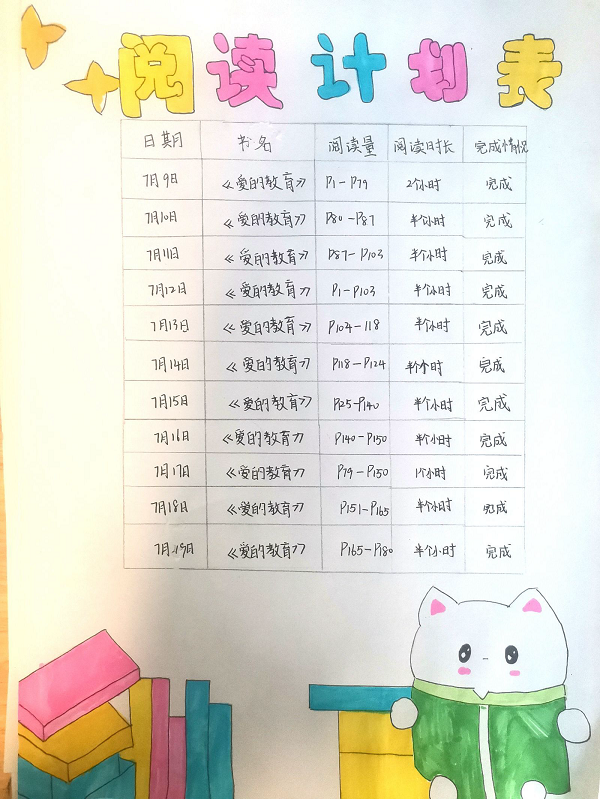 阅读计划表
日期月 书名 阅读量 阅读时长 完成情况
7月9日 《爱的教育》 P1-P79 2个小时 完成
7月10日 《爱的教育》 P80-P87 半个小时 完成
7月11日 《爱的教育》 P87-P103 半个小时 完成
7月12日 《爱的教育》 P1-P103 半个小时 完成
7月13日 《爱的教育》 P104-118 半个小时 完成
7月14日 《爱的教育》 P118-P124 半个小时 完成
7月15日 《爱的教育》 P25-P140 半个小时 完成
7月16日 《爱的教育》 P140-P150 半个小时 完成
7月17日 《爱的教育》 P79-P150 1个小时 完成
7月18日 《爱的教育》 P151-P165 半个小时 完成
7月19日 《爱的教育》 P165-P180 半个小时 完成